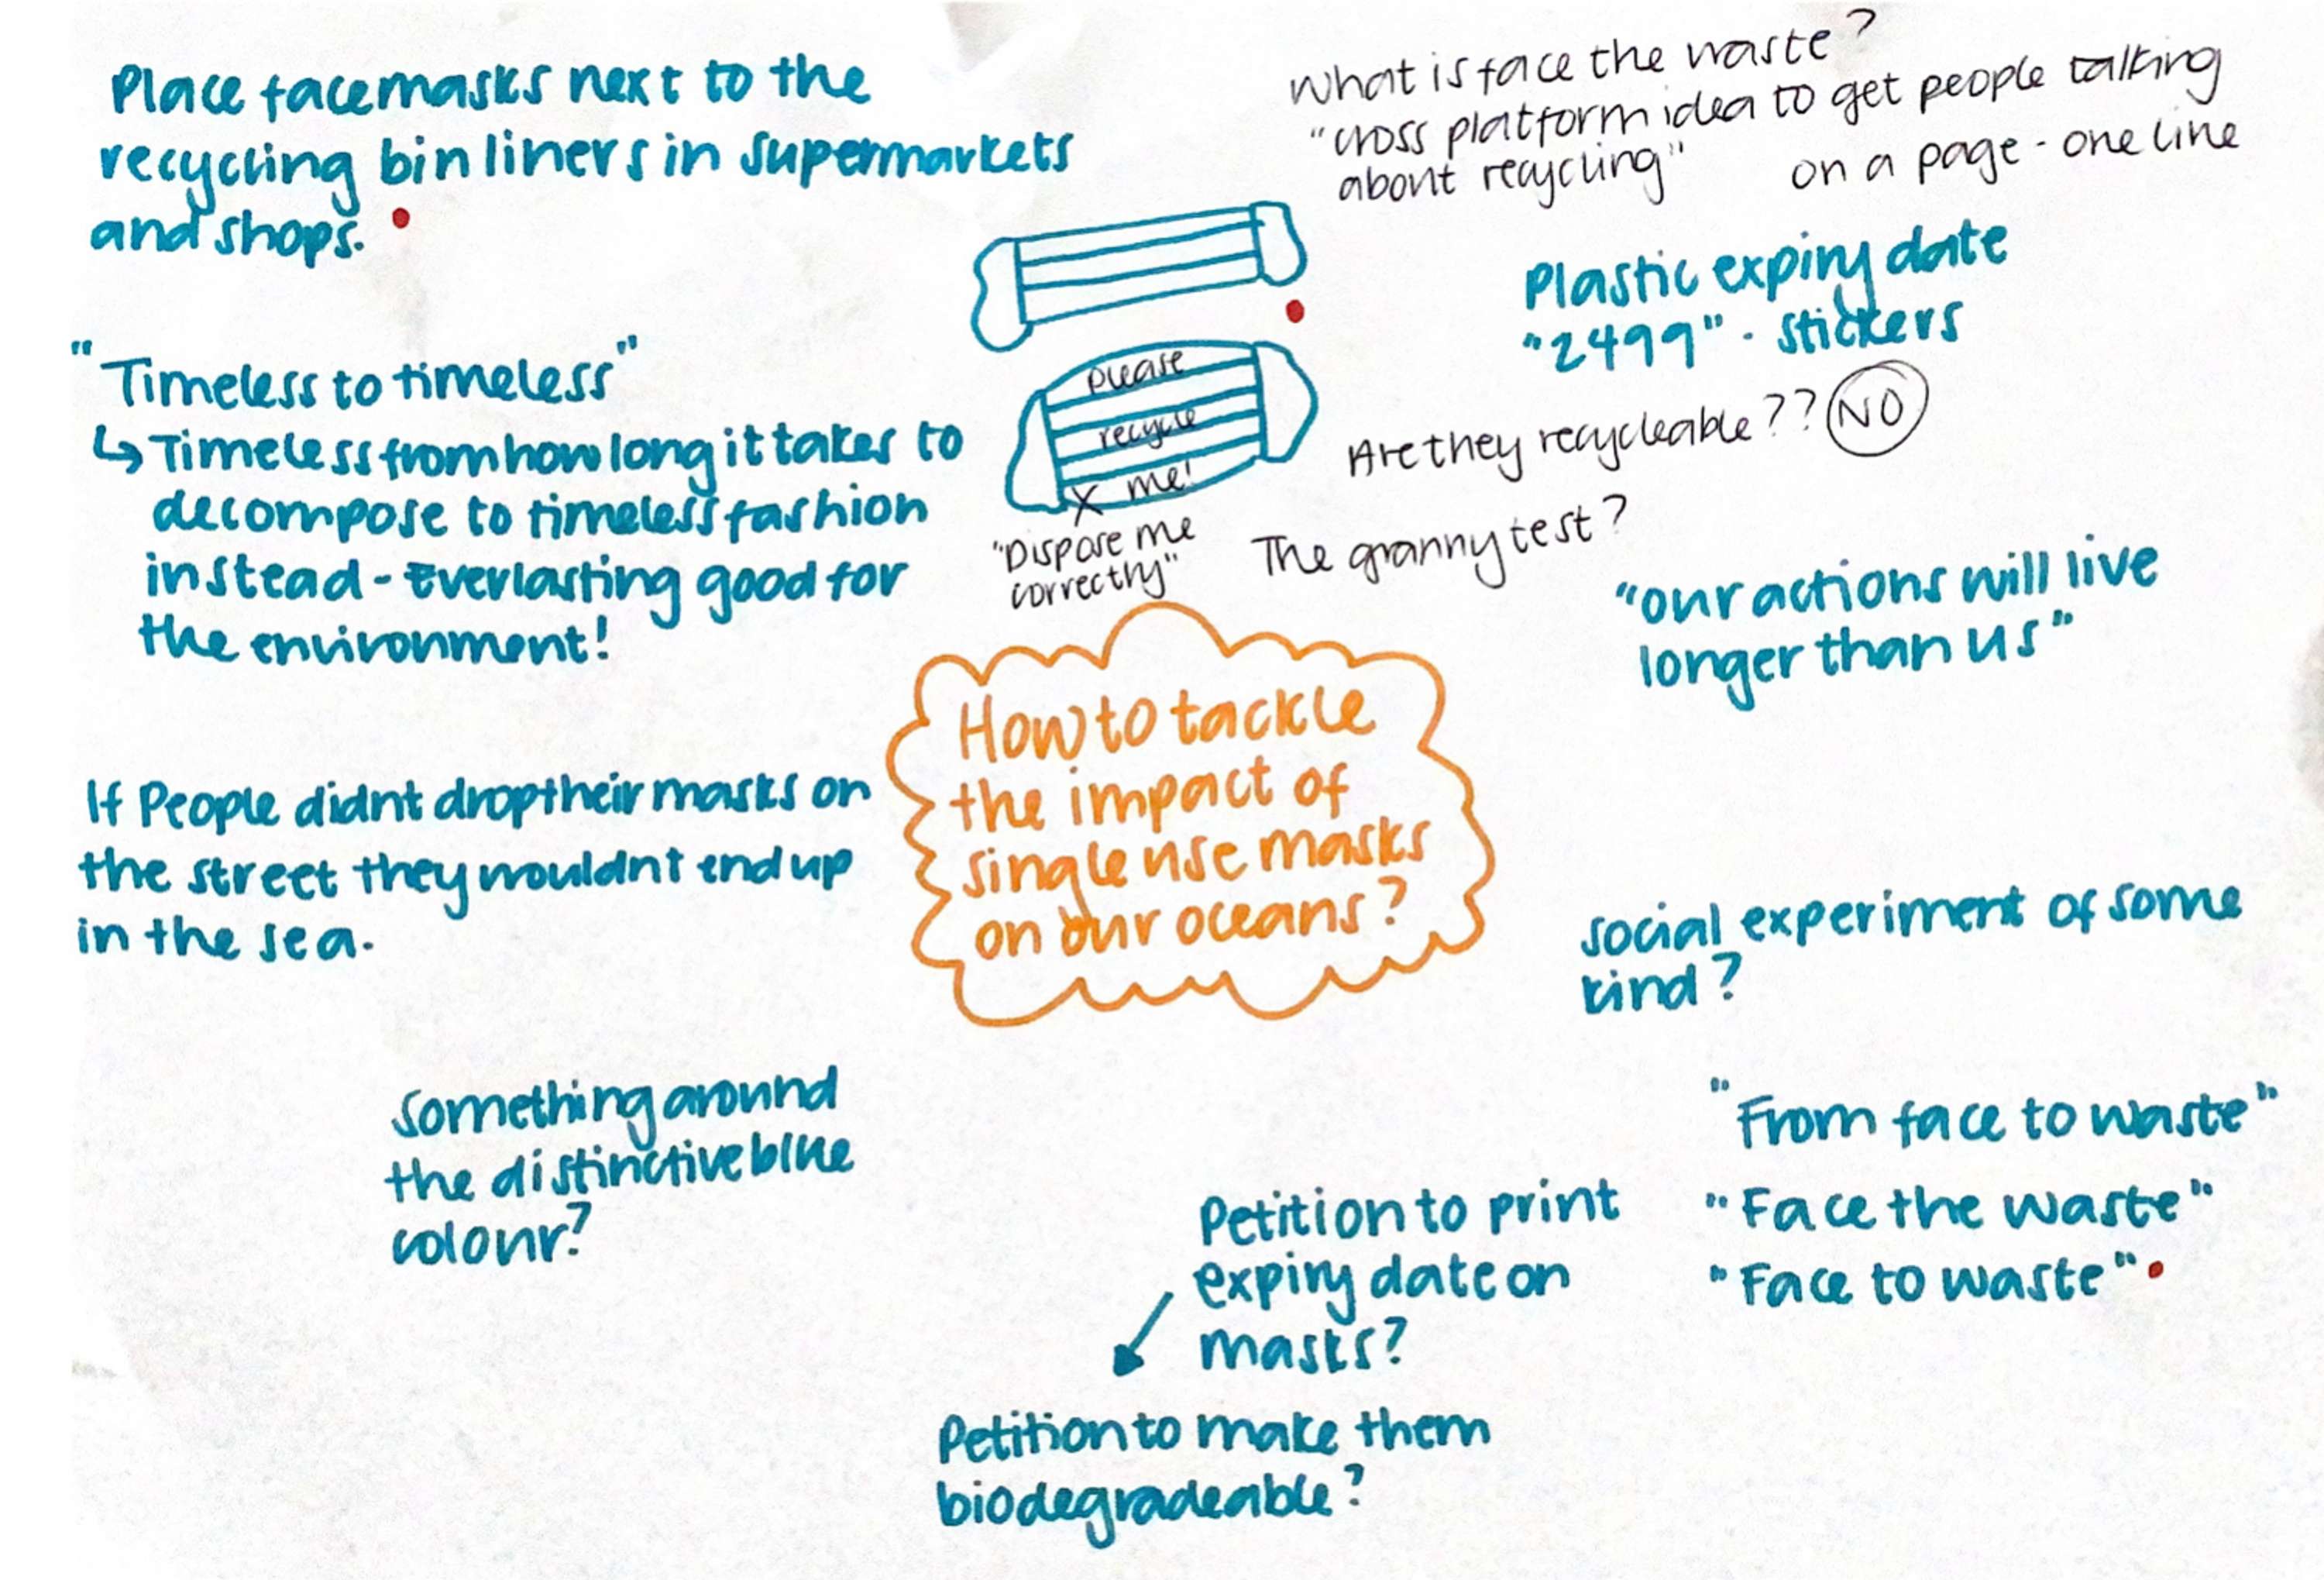 Place facemasks next to the
recycling bin liners in supermarkets
and shops.
What is face the waste?
"cross platform idea to get people talking
about recycling"
on a page - one line
Plastic expiry date
"2499" - stickers
please
recycle
me!
x
"Dispose me
correctly"
Are they recycleable?? NO
The granny test?
"Timeless to timeless"
↳ Timeless from how long it takes to
decompose to timeless fashion
instead - Everlasting good for
the environment!
"our actions will live
longer than us"
How to tackle
the impact of
single use masks
on our oceans?
If People didnt drop their masks on
the street they wouldnt end up
in the sea.
social experiment of some
kind?
Something around
the distinctive blue
colour?
"From face to waste"
"Face the waste"
"Face to waste"
Petition to print
expiry date on
masks?
Petition to make them
biodegradeable?